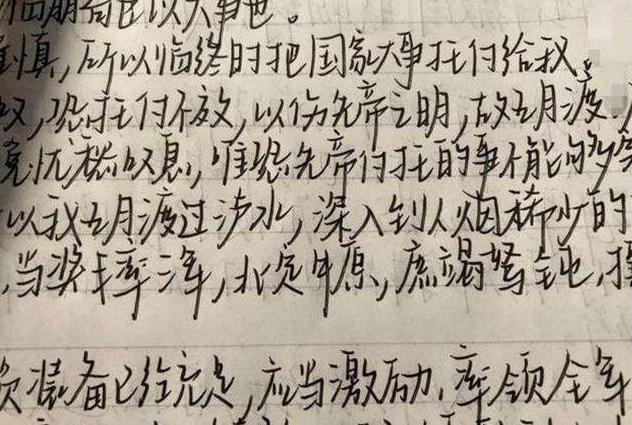 临崩寄臣以大事也。
谨慎,所以临终时把国家大事托付给我。
叹,恐托付不效,以伤先帝之明,故五月渡
忧愁叹息,唯恐先帝付托的事不能够
以我五月渡过泸水,深入到人烟稀少的
,当奖率三军,北定中原,庶竭驽钝,
装备已经充足,应当激励、率领全军